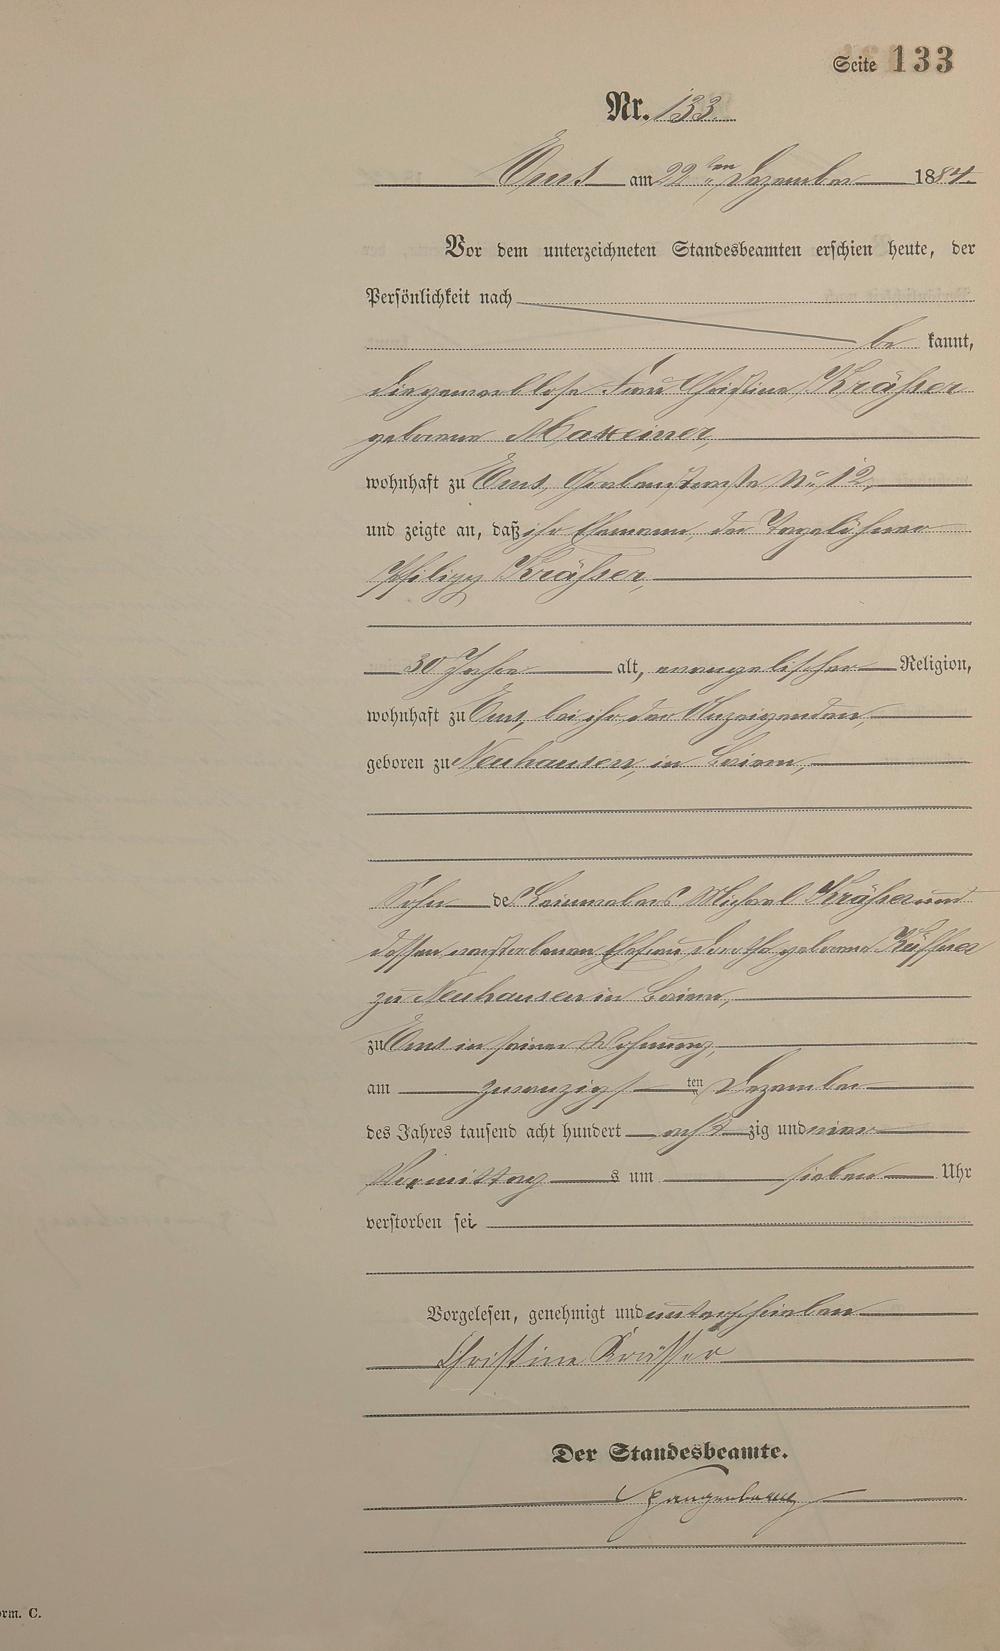 Seite 133
Nr. 133.
Ems am 22ten Dezember 1884.
Vor dem unterzeichneten Standesbeamten erschien heute, der
Persönlichkeit nach
be kannt,
die gewerblose Frau Christine Kräßer
geborene Masteiner,
wohnhaft zu Ems, No 12,
und zeigte an, daß ihr Ehemann, der Tagelöhner
Philipp Kräßer,
30 Jahre alt, evangelischer Religion,
wohnhaft zu Ems, bei ihr der Anzeigenden,
geboren zu Neuhausen, in Baiern,
Sohn des Leinwebers Michael Kräßer und
dessen verstorbenen Ehefrau Dorothe geborene Küffner
zu Neuhausen in Baiern,
zu Ems in seiner Wohnung,
am zwanzigsten Dezember
des Jahres tausend acht hundert acht zig und vier
Vormittag s um sieben Uhr
verstorben sei
Vorgelesen, genehmigt und unterschrieben
Christine Krässer
Der Standesbeamte.
Spangenberg
orm. C.